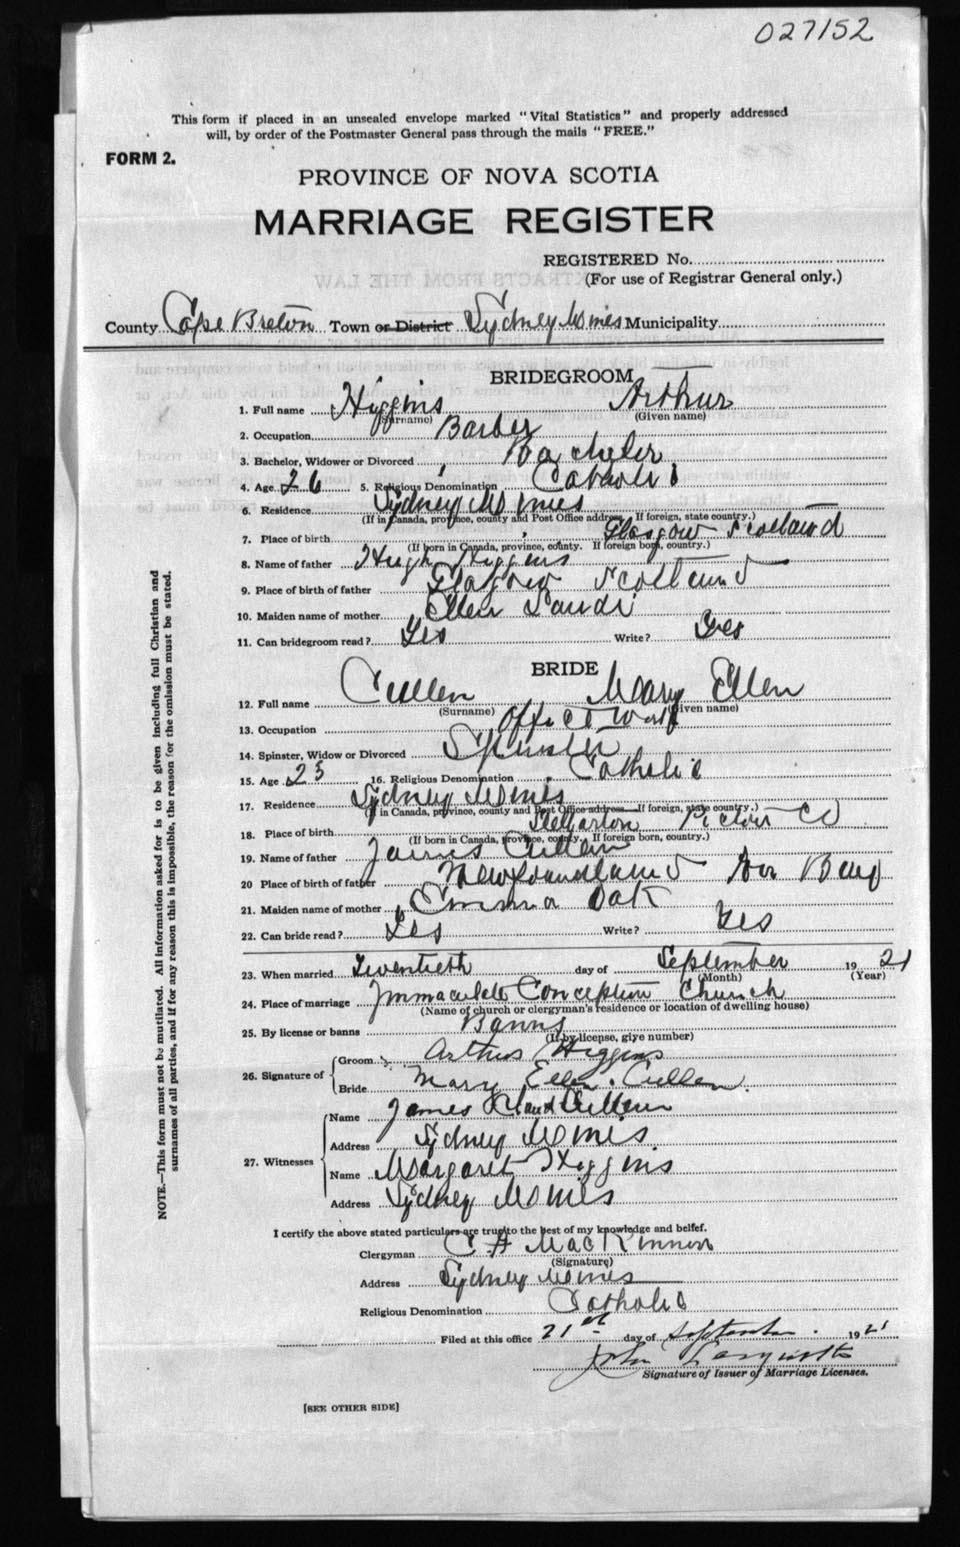 027152
This form if placed in an unsealed envelope marked "Vital Statistics" and properly addressed
will, by order of the Postmaster General pass through the mails "FREE."
FORM 2.
PROVINCE OF NOVA SCOTIA
MARRIAGE REGISTER
REGISTERED No.
(For use of Registrar General only.)
County Cape Breton Town or District Sydney Mines Municipality
BRIDEGROOM
1. Full name Higgins Arthur
(Surname) (Given name)
2. Occupation Barber
3. Bachelor, Widower or Divorced Bachelor
4. Age 26 5. Religious Denomination Catholic
6. Residence Sydney Mines
(If in Canada, province, county and Post Office address. If foreign, state country.)
7. Place of birth Glasgow Scotland
(If born in Canada, province, county. If foreign born, country.)
8. Name of father Hugh Higgins
9. Place of birth of father Glasgow Scotland
10. Maiden name of mother Ellen
11. Can bridegroom read? Yes Write? Yes
BRIDE
12. Full name Cullen Mary Ellen
(Surname) (Given name)
13. Occupation Office Work
14. Spinster, Widow or Divorced Spinster
15. Age 25 16. Religious Denomination Catholic
17. Residence Sydney Mines
(If in Canada, province, county and Post Office address. If foreign, state country.)
18. Place of birth Stellarton Pictou Co
(If born in Canada, province, county. If foreign born, country.)
19. Name of father James Cullen
20 Place of birth of father Newfoundland
21. Maiden name of mother Emma Oak
22. Can bride read? Yes Write? Yes
23. When married Twentieth day of September 1921
(Month) (Year)
24. Place of marriage Immaculate Conception Church
(Name of church or clergyman's residence or location of dwelling house)
25. By license or banns Banns
(If by license, give number)
26. Signature of
Groom Arthur Higgins
Bride Mary Ellen Cullen.
27. Witnesses
Name James Cullen
Address Sydney Mines
Name Margaret Higgins
Address Sydney Mines
I certify the above stated particulars are true to the best of my knowledge and belief.
Clergyman C F MacKinnon
(Signature)
Address Sydney Mines
Religious Denomination Catholic
Filed at this office 21st day of September. 1921
John
Signature of Issuer of Marriage Licenses.
[SEE OTHER SIDE]
NOTE.—This form must not be mutilated. All information asked for is to be given including full Christian and
surnames of all parties, and if for any reason this is impossible, the reason for the omission must be stated.